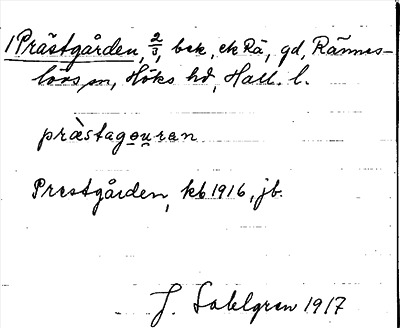 1 Prästgården, 2/3, bsk, ek Rä, gd, Rännes-
lövs sn, Höks hd, Hall. l.
præ̀stagǫu̯ren
Prestgården, kb 1916, jb.
J. Sahlgren 1917